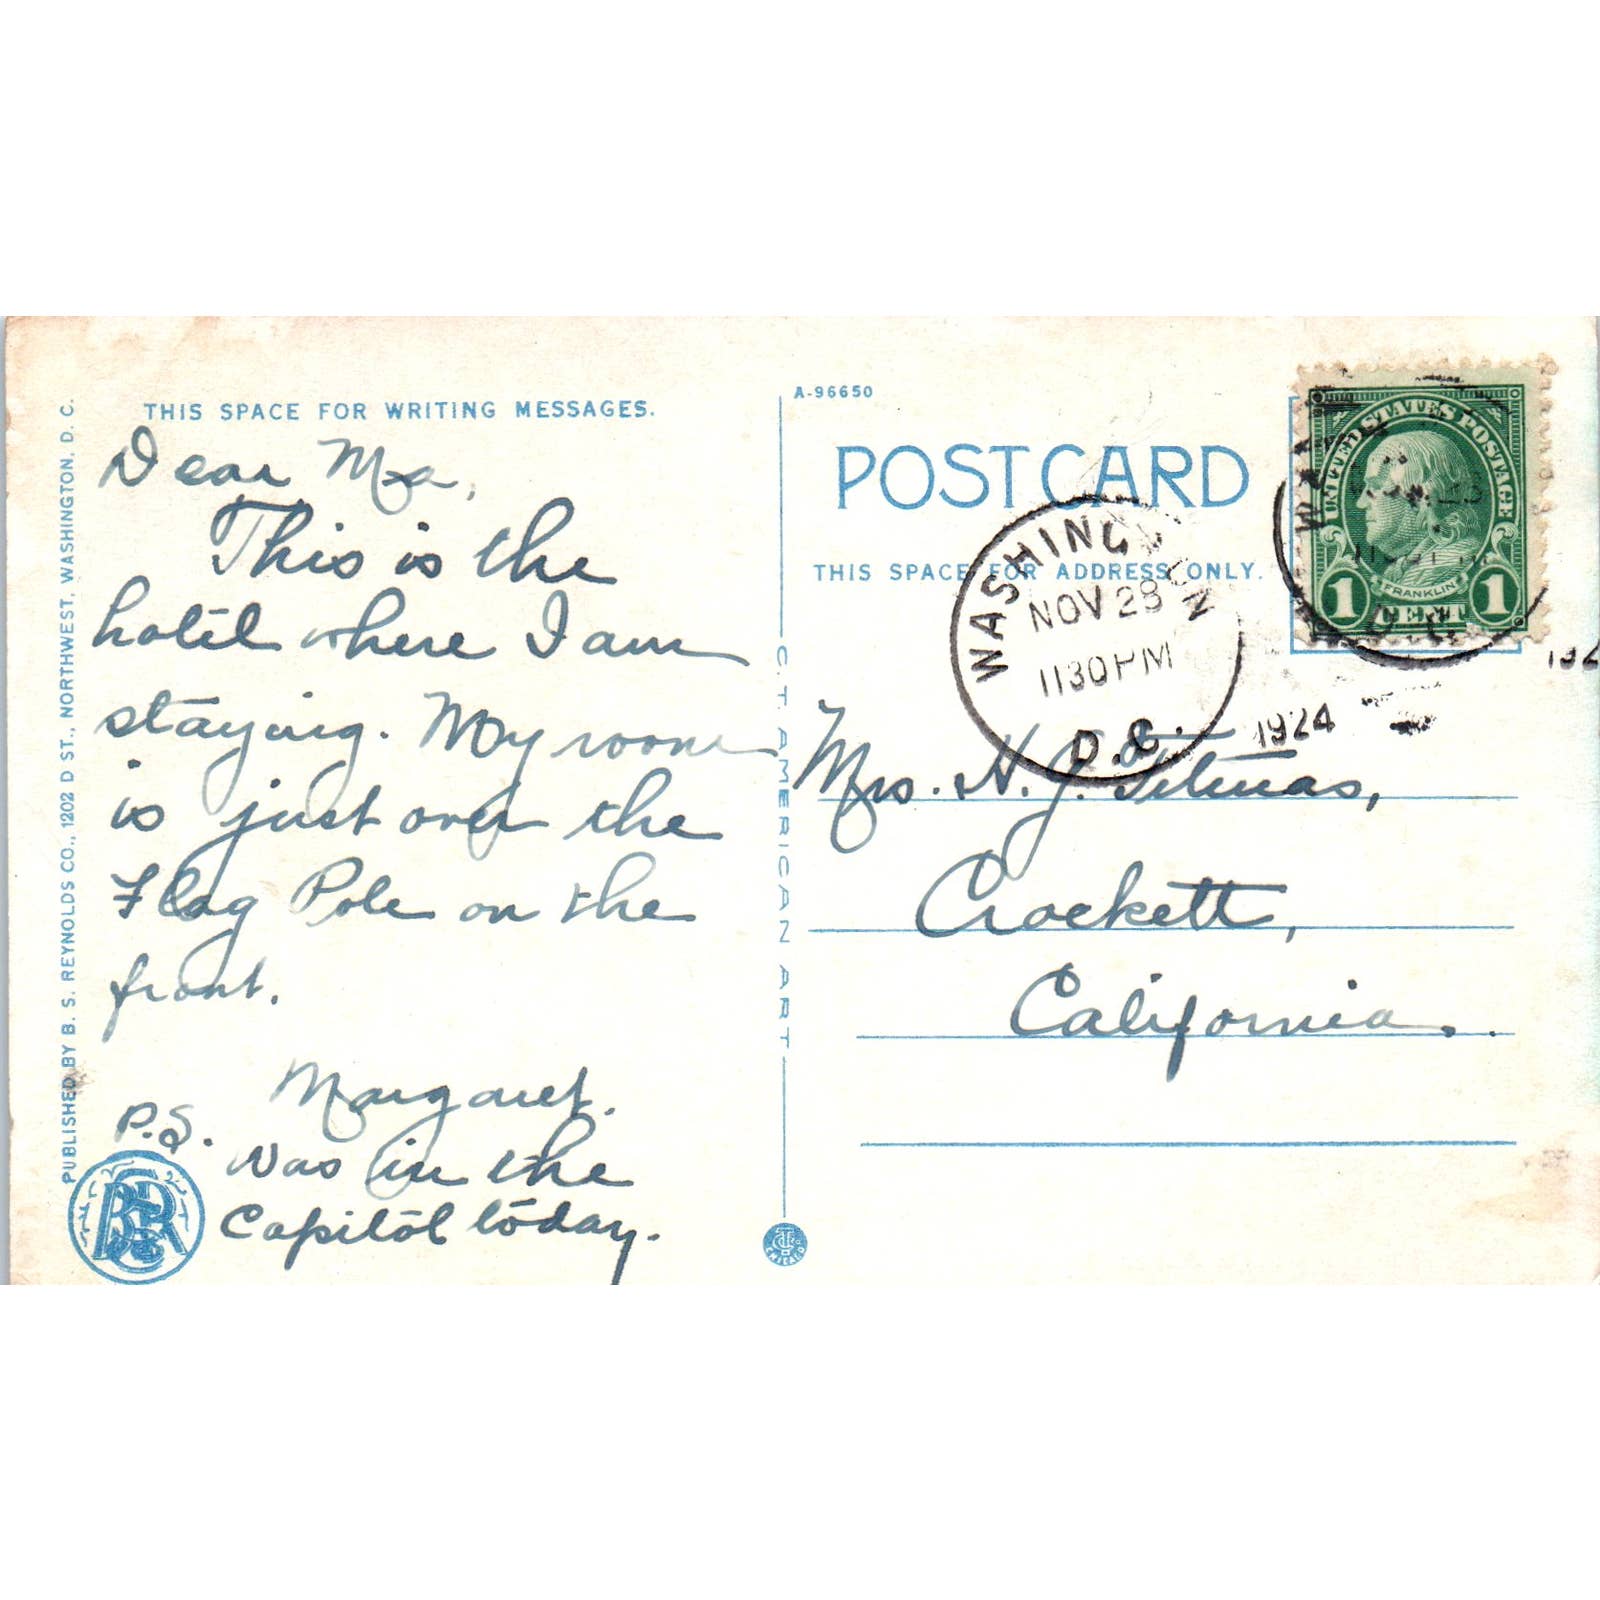 THIS SPACE FOR WRITING MESSAGES.
Dear Ma,
This is the
hotel where I am
staying. My room
is just over the
Flag Pole on the
front.
Margaret.
P.S.
Was in the
Capitol today.
PUBLISHED BY B. S. REYNOLDS CO., 1202 D ST., NORTHWEST, WASHINGTON, D. C.
C. T. AMERICAN ART
CHICAGO
A-96650
POST CARD
THIS SPACE FOR ADDRESS ONLY.
WASHINGTON
NOV 28
1130 PM
D.C.
1924
UNITED STATES POSTAGE
FRANKLIN
1 CENT 1
Mrs. H. J.
Crockett,
California.